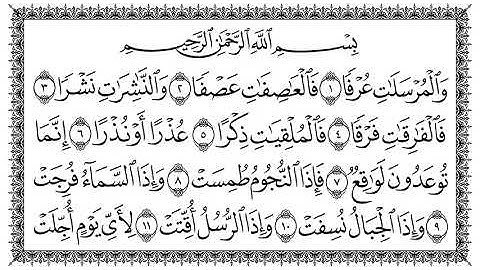 بِسْمِ اللَّهِ الرَّحْمَٰنِ الرَّحِيمِ
وَالْمُرْسَلَاتِ عُرْفًا ١ فَالْعَاصِفَاتِ عَصْفًا ٢ وَالنَّاشِرَاتِ نَشْرًا ٣
فَالْفَارِقَاتِ فَرْقًا ٤ فَالْمُلْقِيَاتِ ذِكْرًا ٥ عُذْرًا أَوْ نُذْرًا ٦ إِنَّمَا
تُوعَدُونَ لَوَاقِعٌ ٧ فَإِذَا النُّجُومُ طُمِسَتْ ٨ وَإِذَا السَّمَاءُ فُرِجَتْ
٩ وَإِذَا الْجِبَالُ نُسِفَتْ ١٠ وَإِذَا الرُّسُلُ أُقِّتَتْ ١١ لِأَيِّ يَوْمٍ أُجِّلَتْ